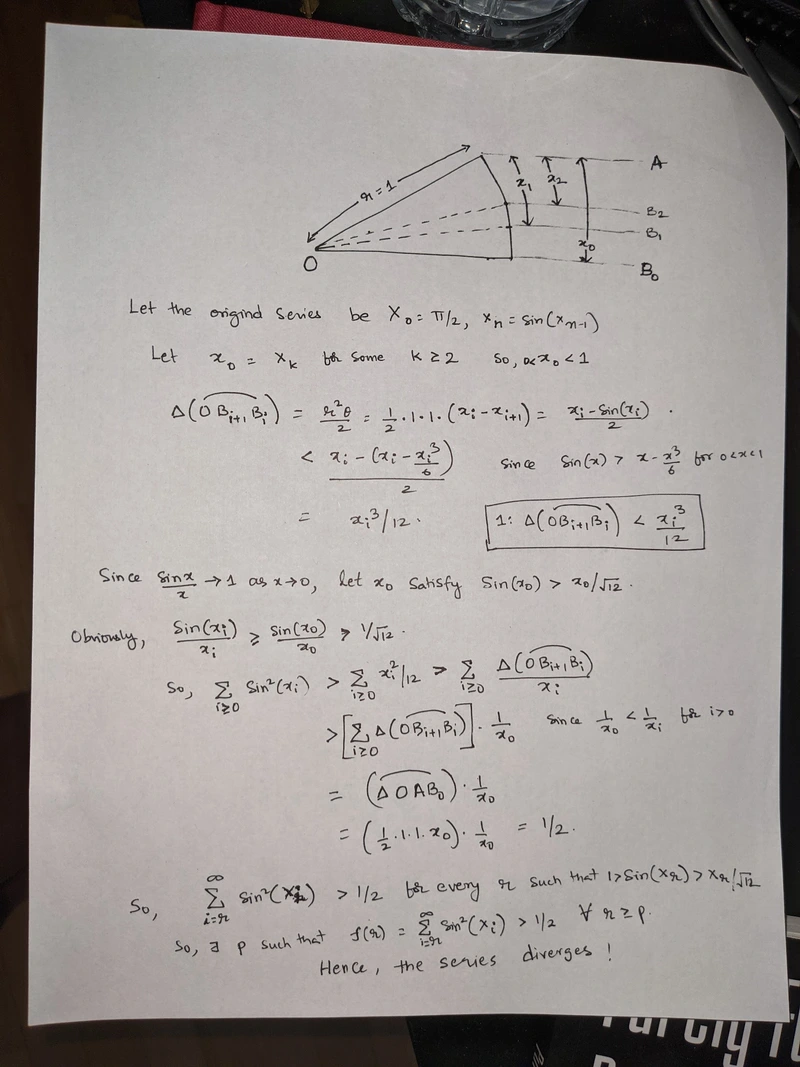 r = 1
x₁ x₂ A
B₂
B₁
x₀
O B₀
Let the origind series be X₀ = π/2, xₙ = sin(xₙ₋₁)
Let x₀ = Xₖ for some k ≥ 2 so, 0<x₀<1
Δ(OBᵢ₊₁Bᵢ) = r²θ/2 = 1/2 · 1 · 1 · (xᵢ - xᵢ₊₁) = (xᵢ - sin(xᵢ))/2 .
< (xᵢ - (xᵢ - xᵢ³/6))/2 since sin(x) > x - x³/6 for 0<x<1
= xᵢ³/12 . 1: Δ(OBᵢ₊₁Bᵢ) < xᵢ³/12
Since sinx/x → 1 as x→0, let x₀ satisfy sin(x₀) > x₀/√12 .
Obviously, sin(xᵢ)/xᵢ ≥ sin(x₀)/x₀ > 1/√12 .
So, Σ i≥0 sin²(xᵢ) > Σ i≥0 xᵢ²/12 > Σ i≥0 Δ(OBᵢ₊₁Bᵢ)/xᵢ
> [Σ i≥0 Δ(OBᵢ₊₁Bᵢ)] · 1/x₀ since 1/x₀ < 1/xᵢ for i>0
= (ΔOAB₀) · 1/x₀
= (1/2 · 1 · 1 · x₀) · 1/x₀ = 1/2 .
So, Σ i=r ∞ sin²(Xᵢ) > 1/2 for every r such that 1 > sin(Xᵣ) > Xᵣ/√12
So, ∃ p such that f(r) = Σ i=r ∞ sin²(Xᵢ) > 1/2 ∀ r ≥ p.
Hence, the series diverges !